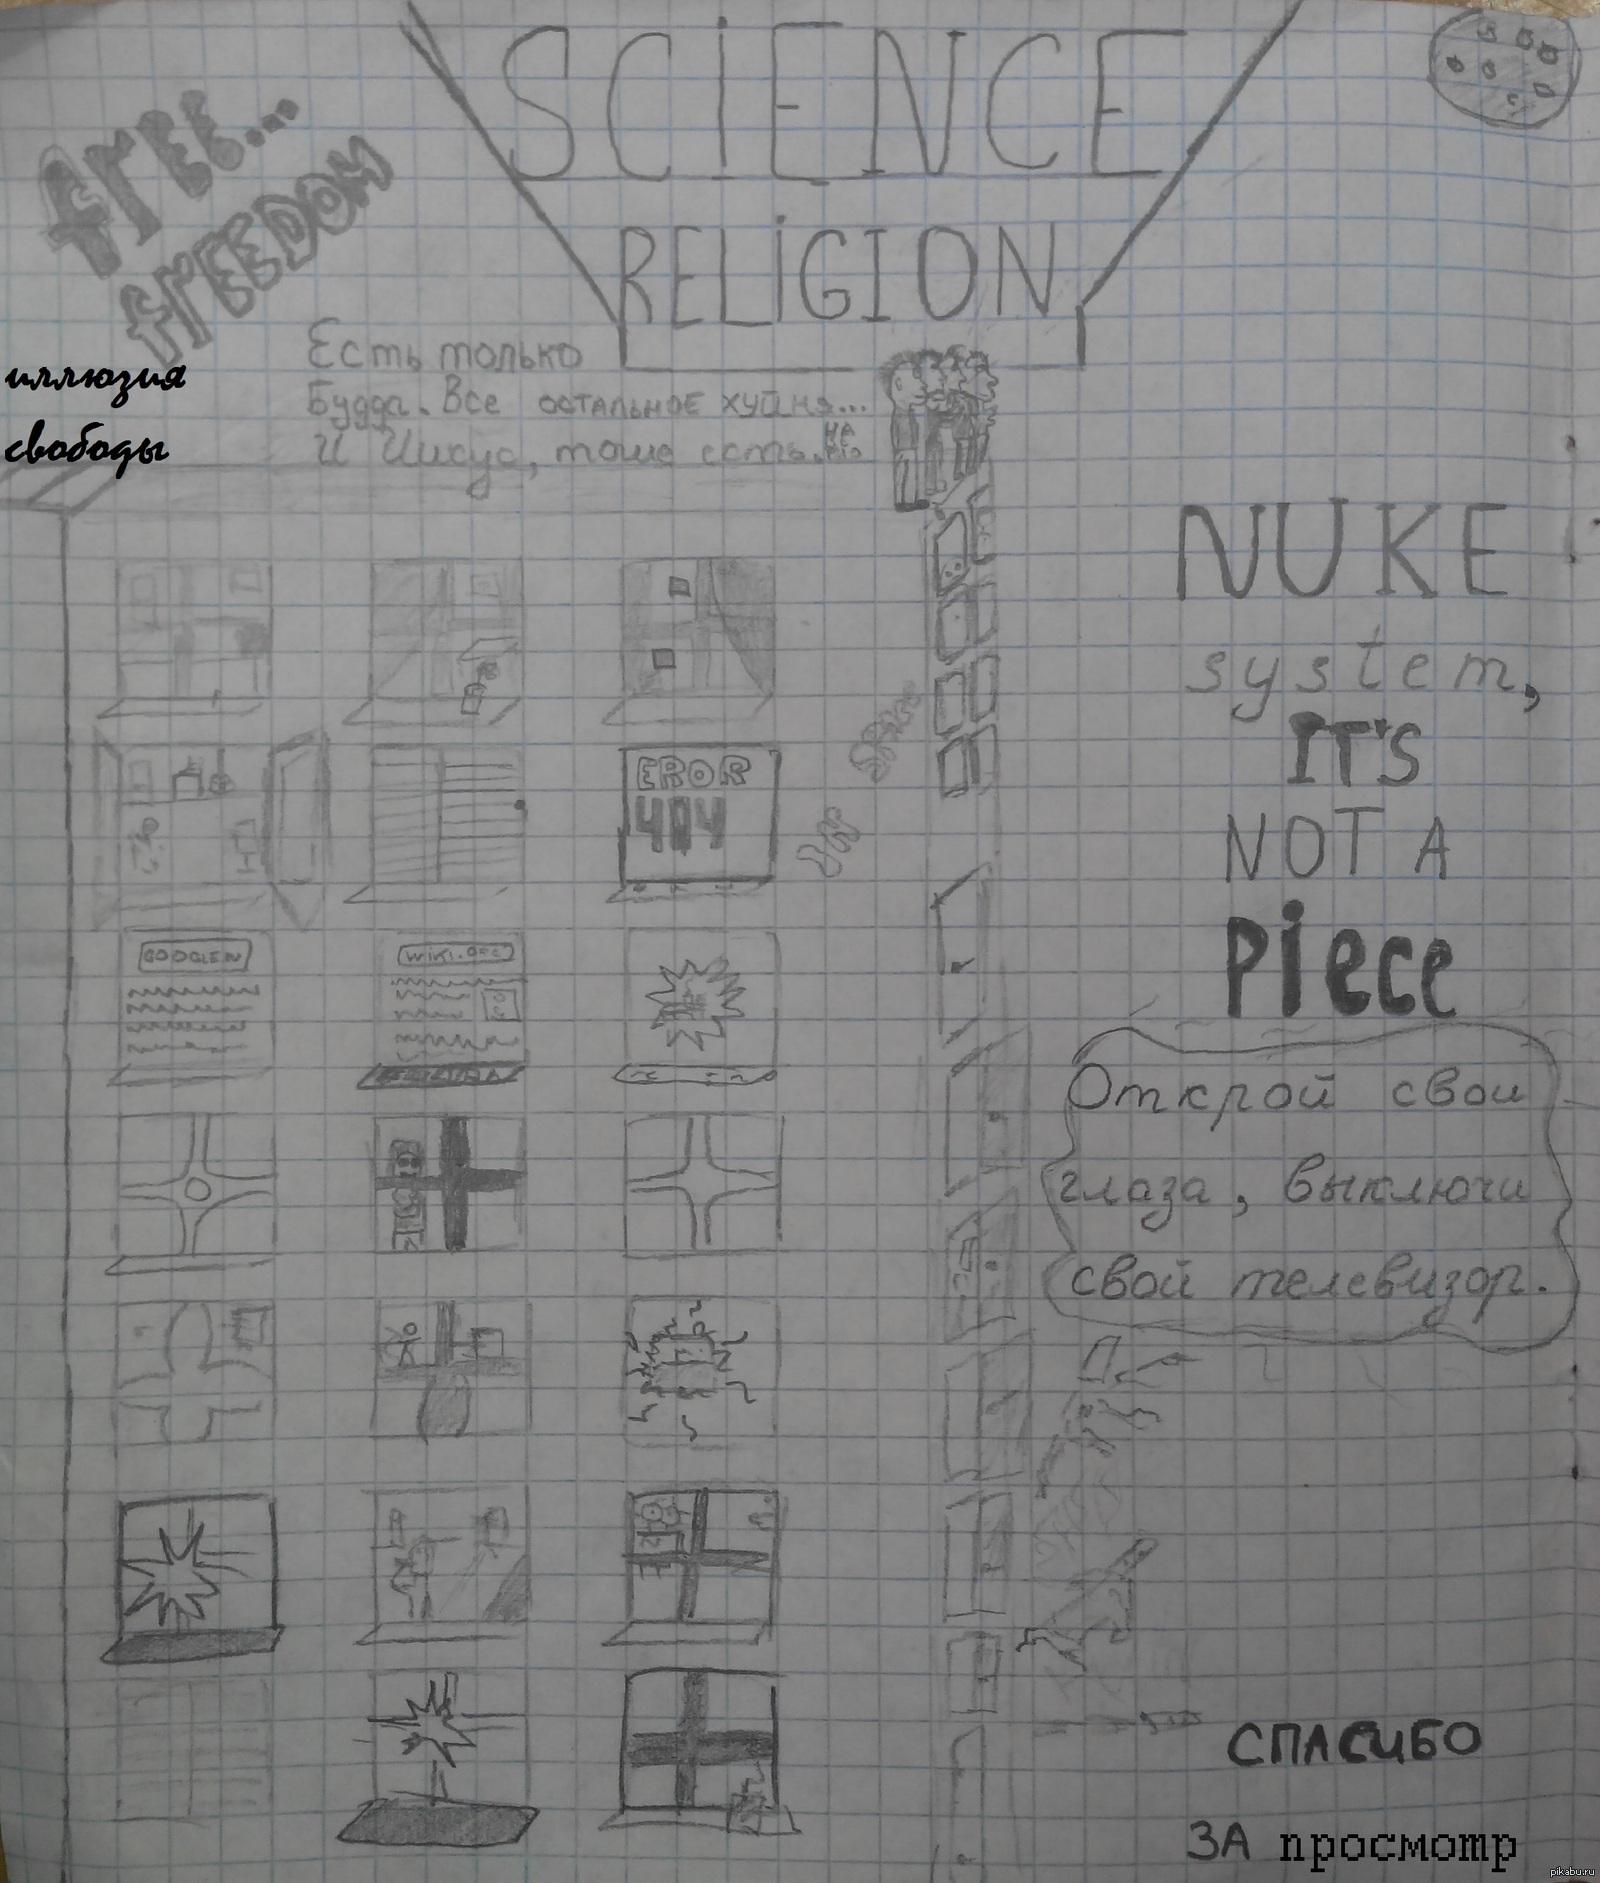 SCIENCE
RELIGION
free...
frEEDOM
иллюзия
свободы
Есть только
Будда. Все остальное хуйня...
И Иисус, тоже есть.
NUKE
system,
IT'S
NOT A
Piece
EROR
404
GOOGLE.N
WIKI.ORG
Открой свои
глаза, выключи
свой телевизор.
СПАСИБО
ЗА просмотр
pikabu.ru